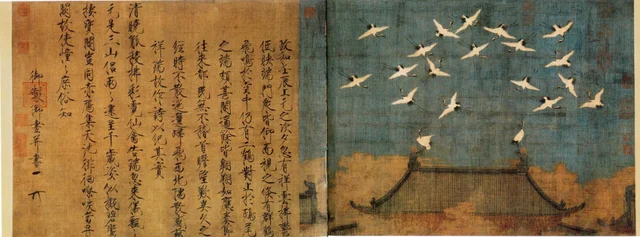 政和壬辰上元之次夕忽有祥雲拂鬱
低映端門眾皆仰而視之倏有群鶴
飛鳴於空中仍有二鶴對止於鴟尾
之端頗甚閒適餘皆翱翔如應奏節
往來都民無不稽首瞻望歎異久之
經時不散迤邐歸飛西北隅散感茲
祥瑞故作詩以紀其實
清曉觚稜拂彩霓仙禽告瑞忽來儀飄飄
元是三山侶兩兩還呈千歲姿似擬碧鸞
棲寶閣豈同赤雁集天池徘徊嘹唳當丹
闕故使憧憧庶俗知
御製御畫并書